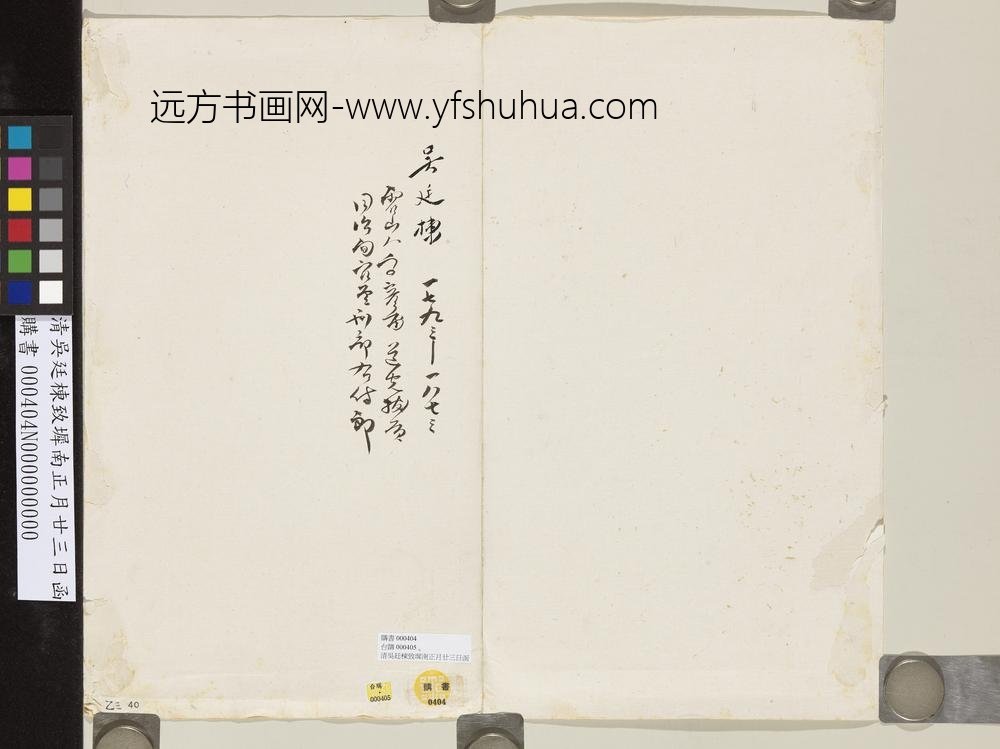 远方书画网-www.yfshuhua.com
吳廷棟 一七九三—一八七三
霍山人 字彥甫 道光拔貢
同治間官至刑部右侍郎
清吳廷棟致墀南正月廿三日函
購書 000404N000000000
購書 000404
台購 000405。
清吳廷棟致墀南正月廿三日函
台購
000405
購書
0404
乙三 40